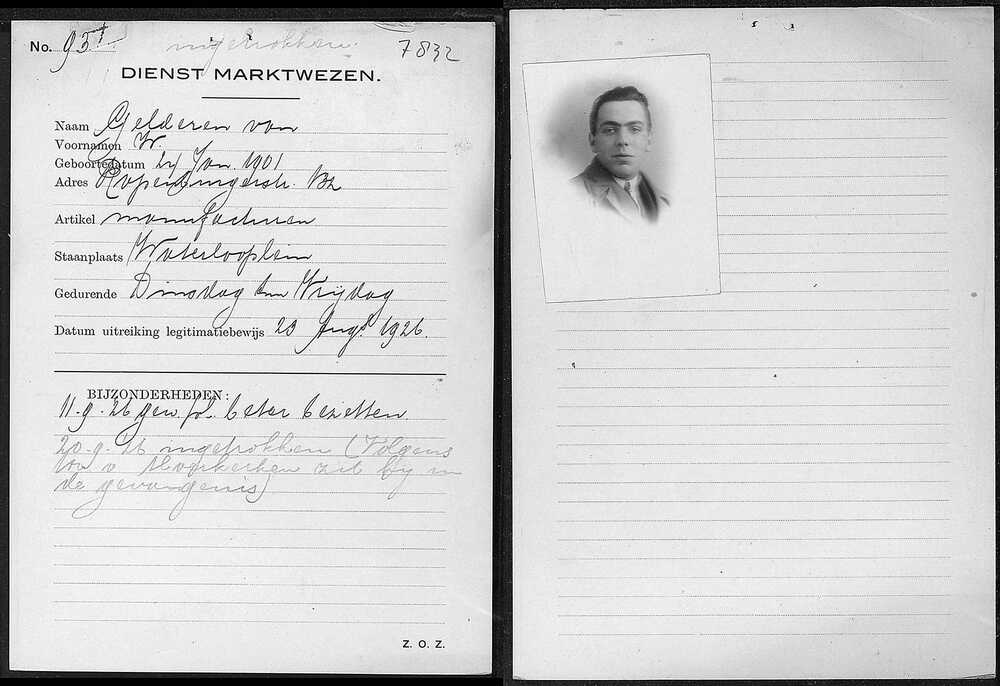 No. 95 ingetrokken. 7832
DIENST MARKTWEZEN.
Naam Gelderen van
Voornamen W.
Geboortedatum 24 Jan. 1901
Adres Rapenburgerstr.
Artikel manufacturen
Staanplaats Waterlooplein
Gedurende Dinsdag t/m Vrijdag
Datum uitreiking legitimatiebewijs 23 Aug. 1926.
BIJZONDERHEDEN:
11-9-26 gew. beter bezetten
20-9-26 ingetrokken (Volgens
v zit hy in
de gevangenis)
Z. O. Z.